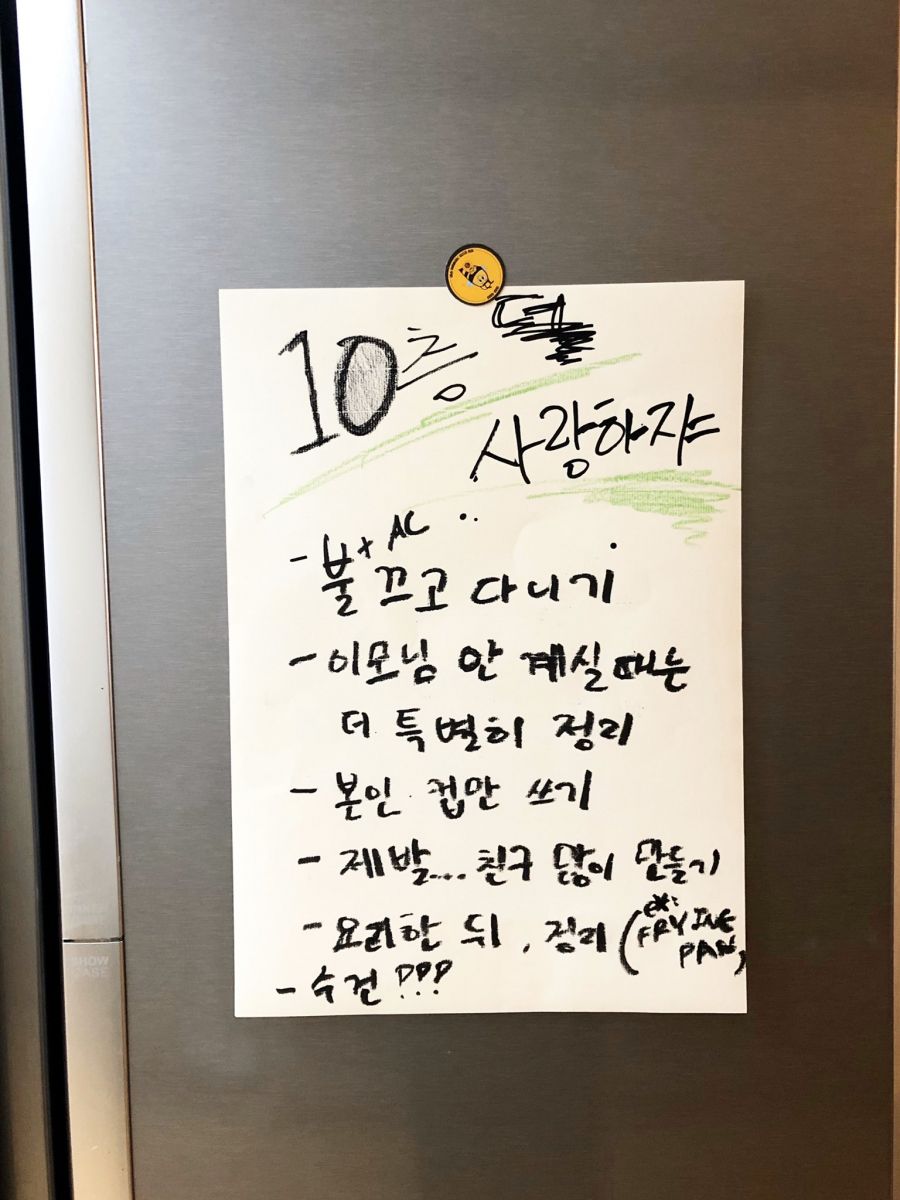 10층
사랑하자
- 불 + AC 끄고 다니기
- 이모님 안 계실 때는
더 특별히 정리
- 본인 컵만 쓰기
- 제발... 친구 많이 만들기
- 요리한 뒤, 정리 (ex: FRYING PAN,
- 수건 ???
SHOW
CASE